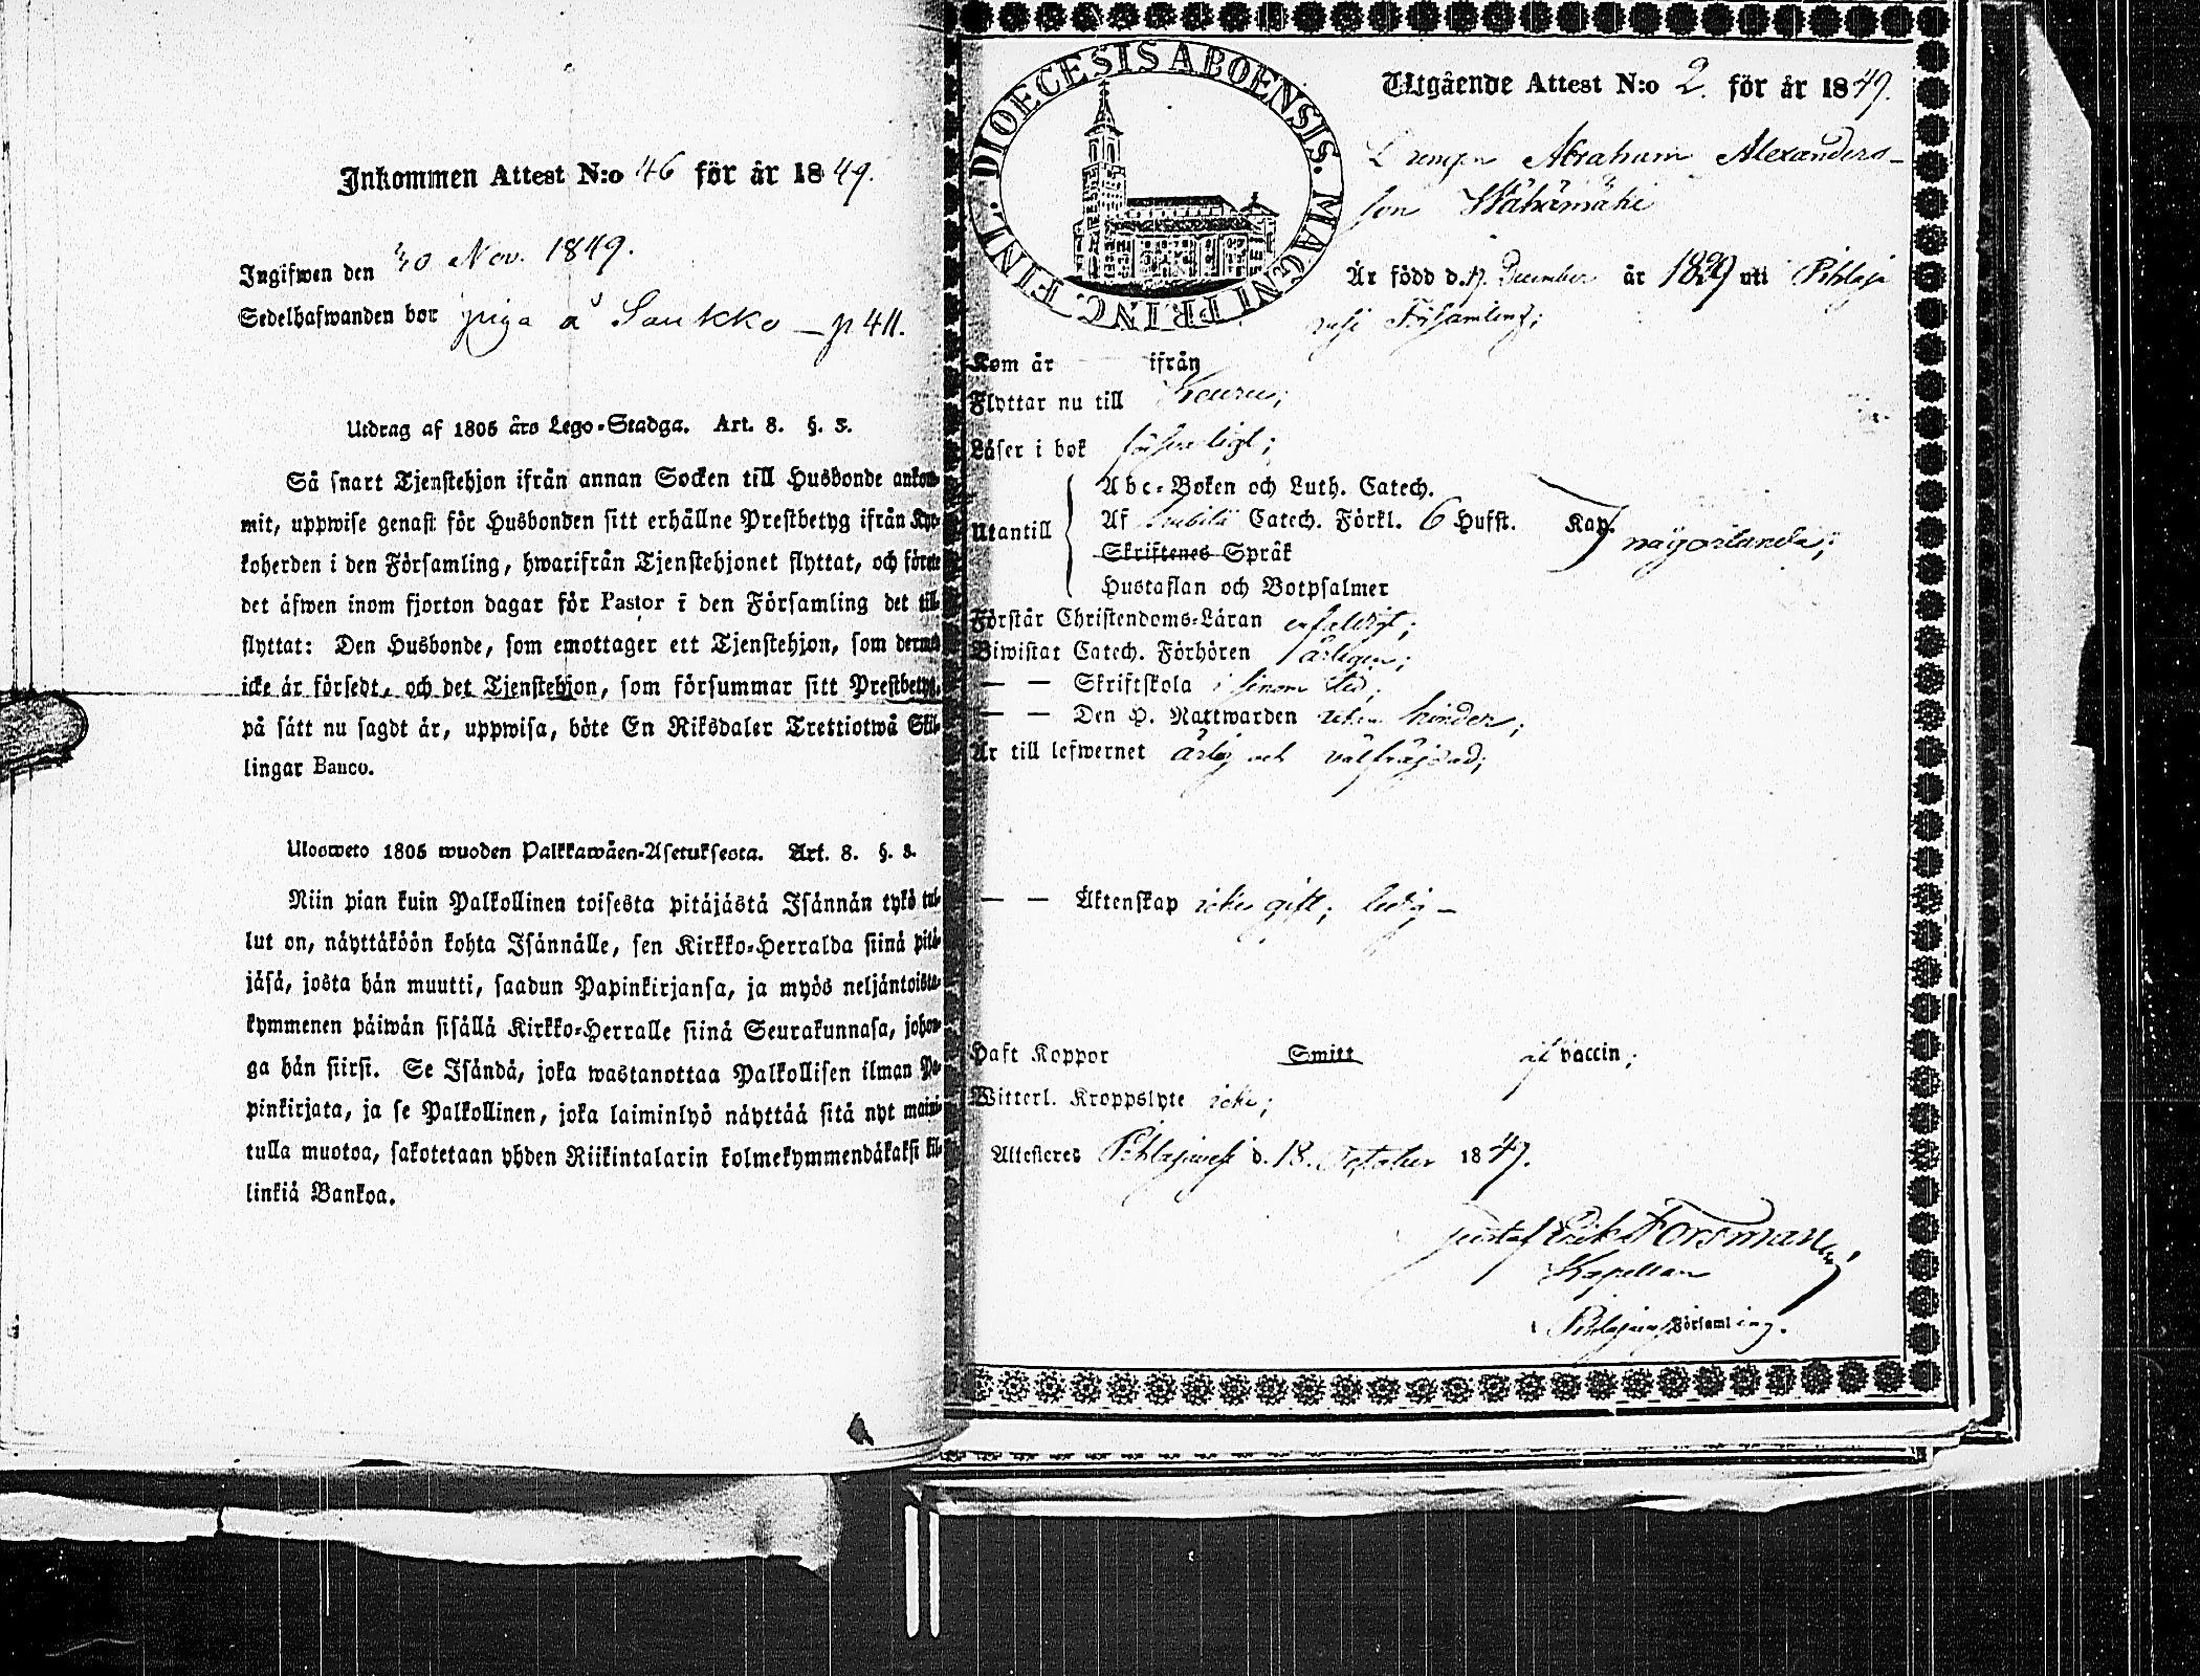 Inkommen Attest N:o 46 för år 1849.
Ingifwen den 30 Nov. 1849.
Sedelhafwanden bor piga å Saukko – p 411.
Utdrag af 1805 års Lego-Stadga. Art. 8. §. 3.
Så snart Tjenstehjon ifrån annan Socken till Husbonde ankom-
mit, uppwise genast för Husbonden sitt erhållne Prestbetyg ifrån Kyr-
koherden i den Församling, hwarifrån Tjenstehjonet flyttat, och förete
det äfwen inom fjorton dagar för Pastor i den Församling det till-
flyttat: Den Husbonde, som emottager ett Tjenstehjon, som dermed
icke är försedt, och det Tjenstehjon, som försummar sitt Prestbetyg,
på sätt nu sagdt är, uppwisa, böte En Riksdaler Trettiotwå Skil-
lingar Banco.
Ulosweto 1805 wuoden Palkkawäen-Asetuksesta. Art. 8. §. 3.
Niin pian kuin Palkollinen toisesta pitäjästä Isännän tykö tul-
lut on, näyttäköön kohta Isännälle, sen Kirkko-Herralda siinä pitä-
jäsä, josta hän muutti, saadun Papinkirjansa, ja myös neljäntoista-
kymmenen päiwän sisällä Kirkko-Herralle siinä Seurakunnasa, johon-
ga hän siirsi. Se Isändä, joka wastanottaa Palkollisen ilman Pa-
pinkirjata, ja se Palkollinen, joka laiminlyö näyttää sitä nyt maini-
tulla muotoa, sakotetaan yhden Riikintalarin kolmekymmendäkaksi kil-
linkiä Bankoa.
DIOECESIS ABOENSIS. MAGNI PRINC. FINL.
Utgående Attest N:o 2. för år 1849.
Drengen Abraham Alexanders-
son
Är född d. 17. December år 1829 uti Pihlaja
vesi Församling;
Kom år ifrån
Flyttar nu till Keuru;
Läser i bok försvarligt;
Abc-Boken och Luth. Catech.
Utantill
Af Catech. Förkl. 6 Hufst. Kap.
någorlunda;
Skriftenes Språk
Hustaflan och Botpsalmer
Förstår Christendoms-Läran enfaldigt;
Biwistat Catech. Förhören årligen;
— — Skriftskola i sinom tid;
— — Den H. Nattwarden utan hinder;
Är till lefwernet ärlig och välfräjdad;
— — Äktenskap icke gift; ledig –
Haft Koppor Smitt af vaccin;
Witterl. Kroppslyte icke;
Attesteres Pihlajavesi d. 18. October 1849.
Gustaf Erik Forsman
Kapellan
i Pihlajavesi Församling.